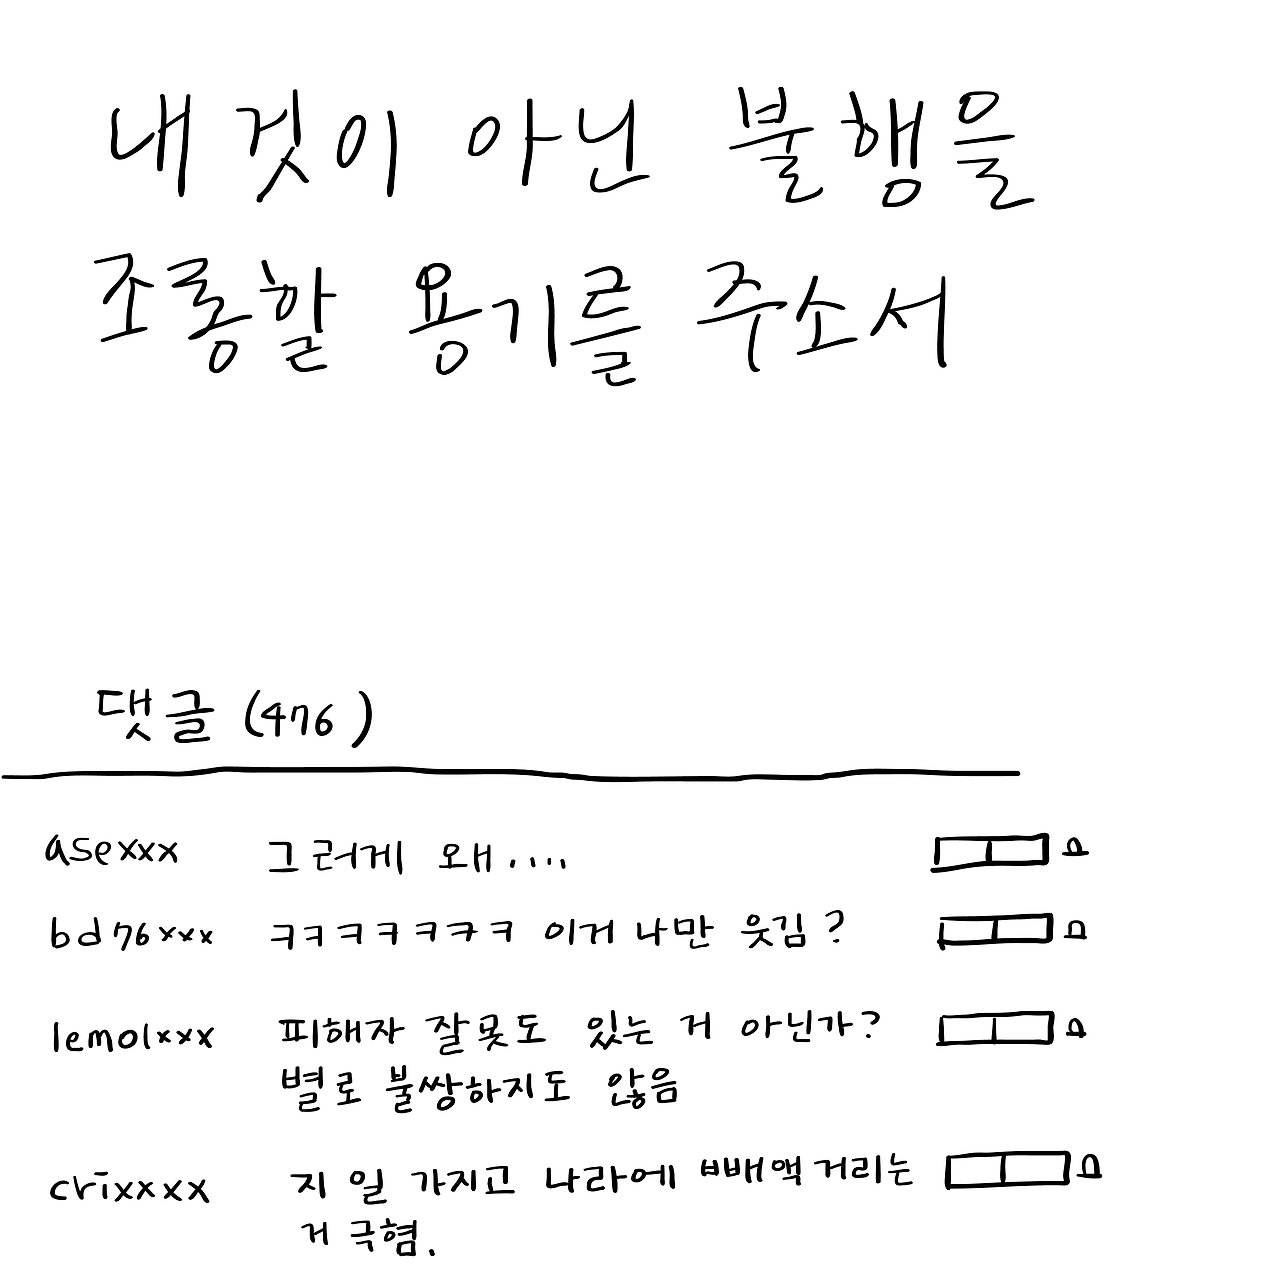 내 것이 아닌 불행을
조롱할 용기를 주소서
댓글 (476)
asexxx 그러게 왜....
bd76xxx ㅋㅋㅋㅋㅋㅋㅋ 이거 나만 웃김?
lemolxxx 피해자 잘못도 있는 거 아닌가?
별로 불쌍하지도 않음
crixxxx 지 일 가지고 나라에 빼액거리는
거 극혐.